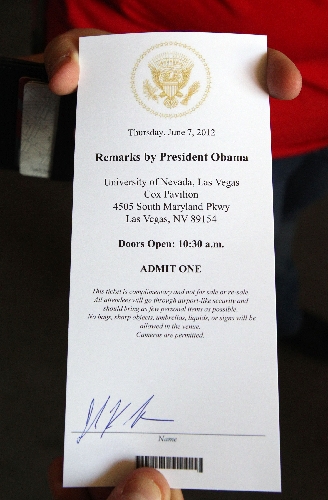 Thursday, June 7, 2012
Remarks by President Obama
University of Nevada, Las Vegas
Cox Pavilion
4505 South Maryland Pkwy
Las Vegas, NV 89154
Doors Open: 10:30 a.m.
ADMIT ONE
This ticket is complimentary and not for sale or re-sale.
All attendees will go through airport-like security and
should bring as few personal items as possible.
No bags, sharp objects, umbrellas, liquids, or signs will be
allowed in the venue.
Cameras are permitted.
Name